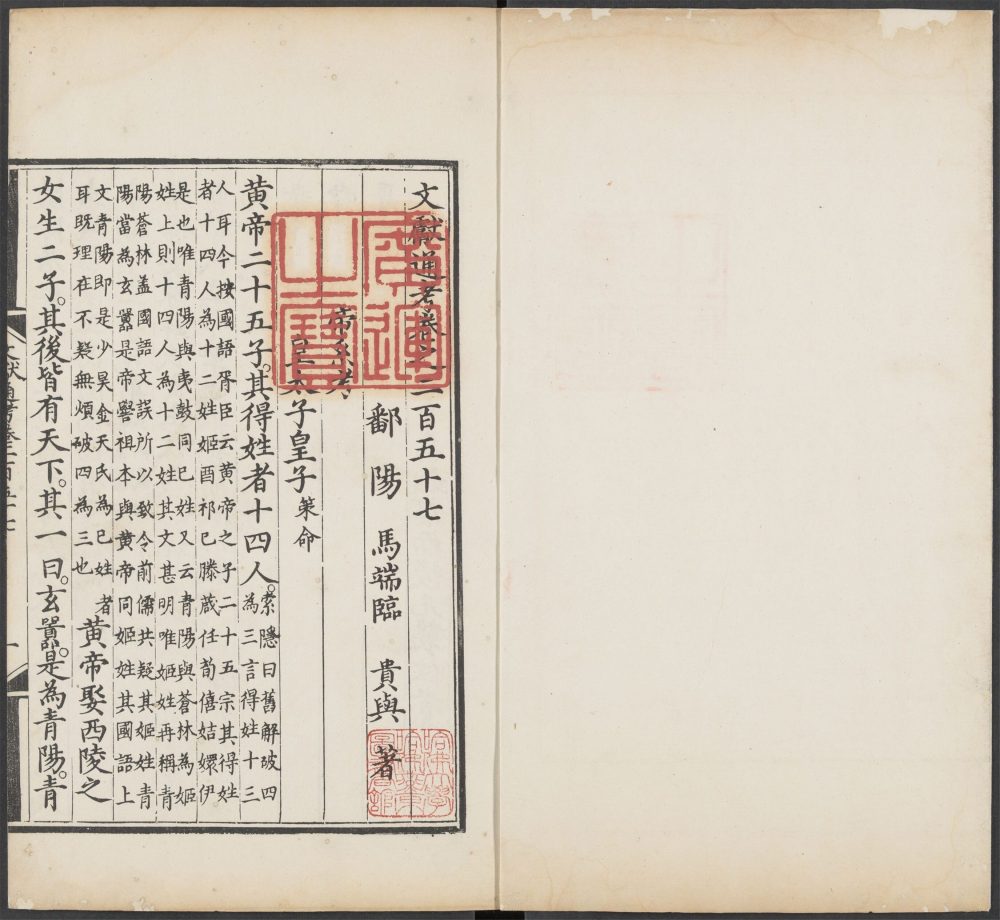 文獻通考卷之二百五十七
鄱陽 馬端臨 貴與 著
帝系考
皇太子皇子 策命
黃帝二十五子。其得姓者十四人。索隱曰舊解破四
為三言得姓十三
人耳今按國語胥臣云黃帝之子二十五宗其得姓
者十四人為十二姓姬酉祁已滕葴任荀僖姞嬛伊
是也唯青陽與夷鼓同已姓又云青陽與蒼林為姬
姓上則十四人為十二姓其文甚明唯姬姓再稱青
陽蒼林盖國語文誤所以致令前儒共疑其姬姓青
陽當為玄囂是帝嚳祖本與黃帝同姬姓其國語上
文青陽即是少昊金天氏為已姓者
耳既理在不疑無煩破四為三也
黃帝娶西陵之
女生二子。其後皆有天下。其一曰。玄囂。是為青陽。青
廣運之寶